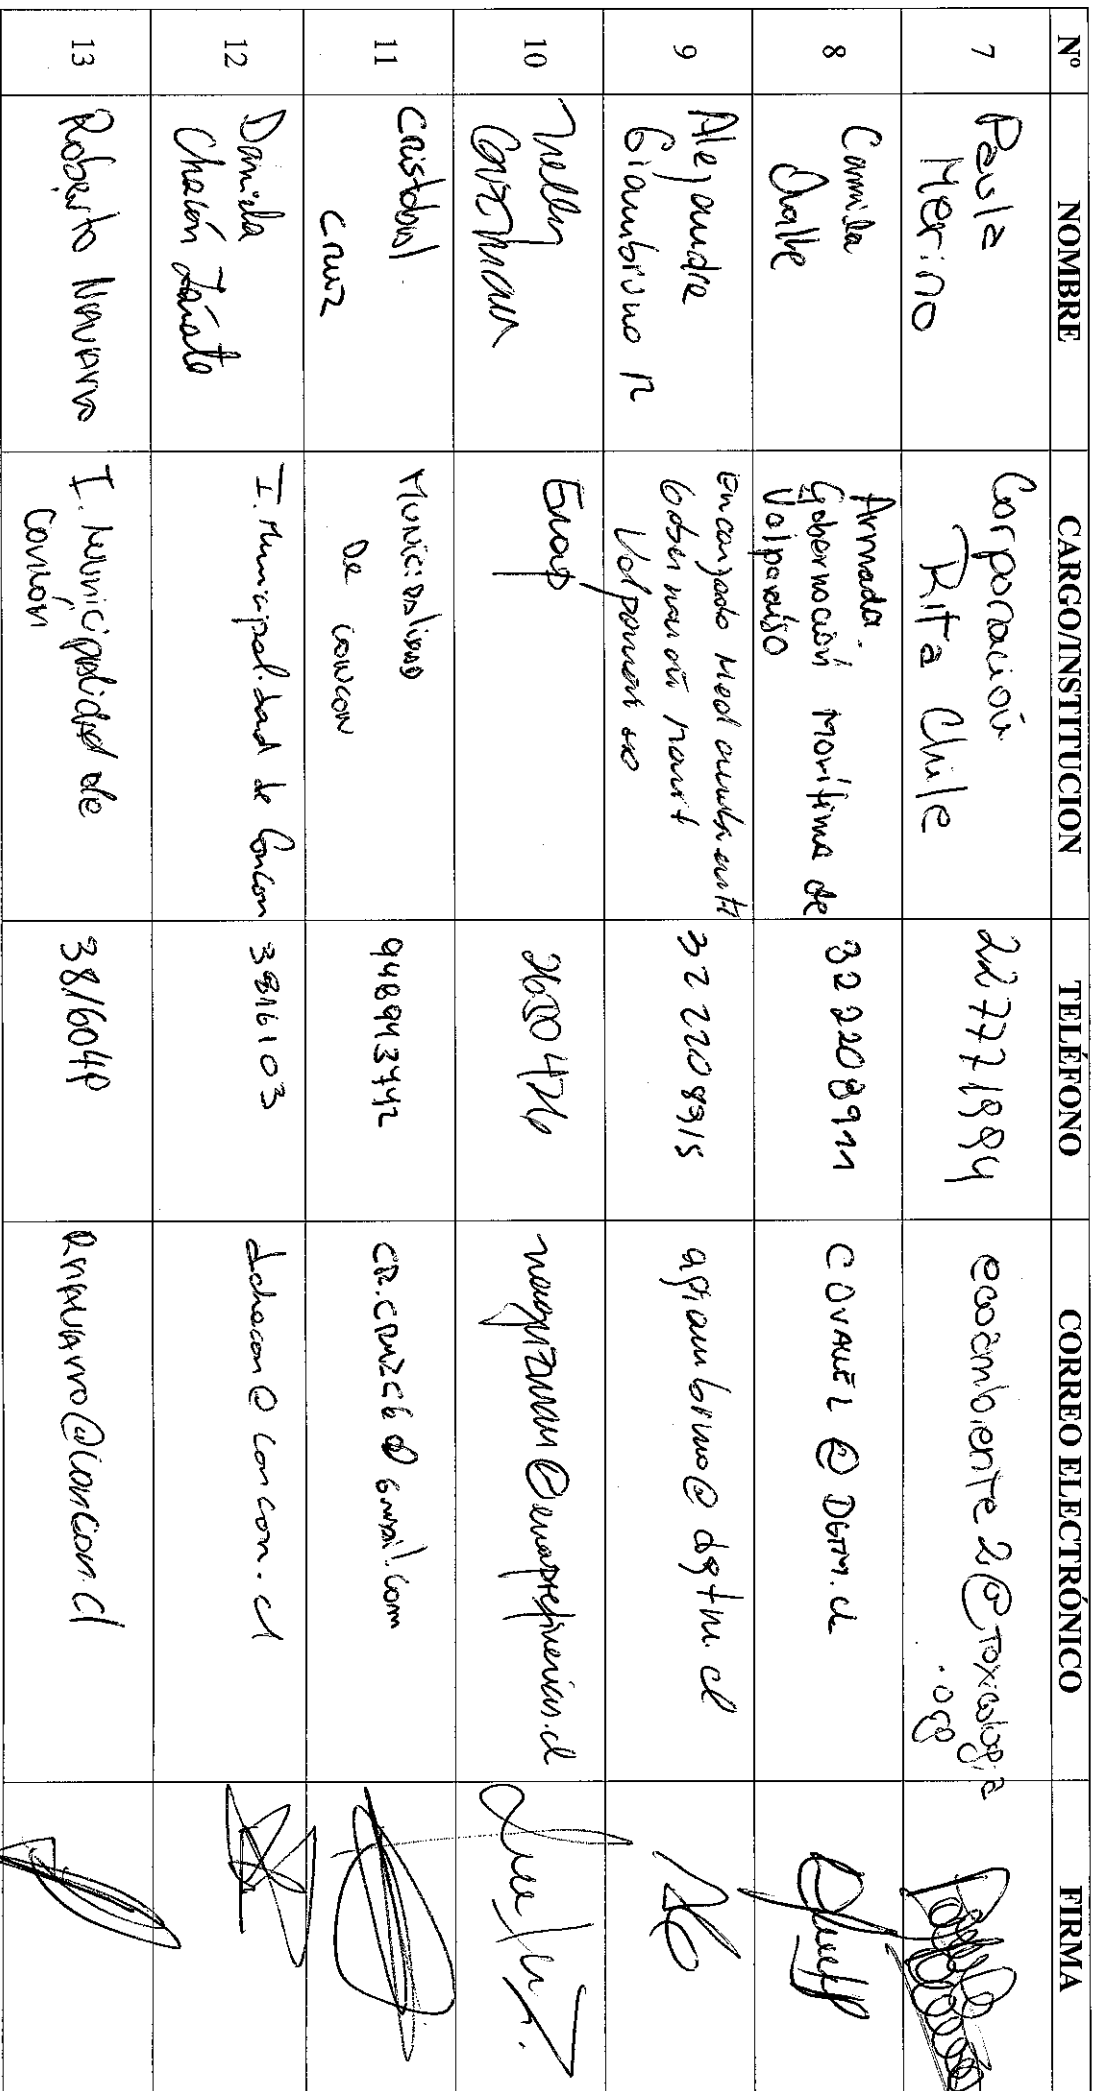 Nº NOMBRE CARGO/INSTITUCION TELÉFONO CORREO ELECTRÓNICO FIRMA
7 Paula Merino Corporación Rita Chile 227771994 ecoambiente2@toxicologia.org
8 Camila Ovalle Armada. Gobernación Marítima de Valparaíso 32 2208911 COVALLEL@DGTM.cl
9 Alejandra Giambruno R Encargado Med ambiente Gobernación Marit Valparaiso 32 2208915 agiambruno@dgtm.cl
10 Nelly Guzman Enap 2650426 naguzman@enaprefinerias.cl
11 Cristobal Cruz Municipalidad De concon 948943442 CR.CRUZC6@gmail.com
12 Daniela Chacón Zárate I. Municipalidad de Concon 3816103 dchacon@concon.cl
13 Roberto Navarro I. Municipalidad de Concón 3816049 RNAVARRO@concon.cl